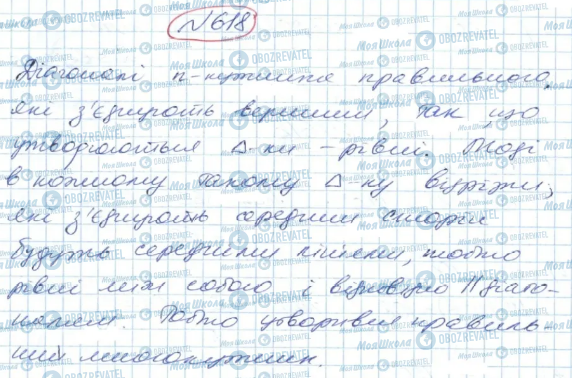 N618
Діагоналі n-кутника правильного,
які з'єднують вершини, так що
утворюються Δ-ки - рівні. Тоді
в кожному такому Δ-ку відрізки,
які з'єднують середини сторін
будуть середніми лініями, тобто
рівні між собою і відповідно ІІ діаго-
налям. Тобто утворився правиль
ний многокутник.